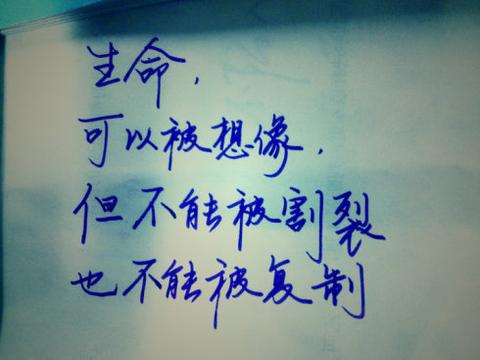 生命，
可以被想像，
但不能被割裂
也不能被复制